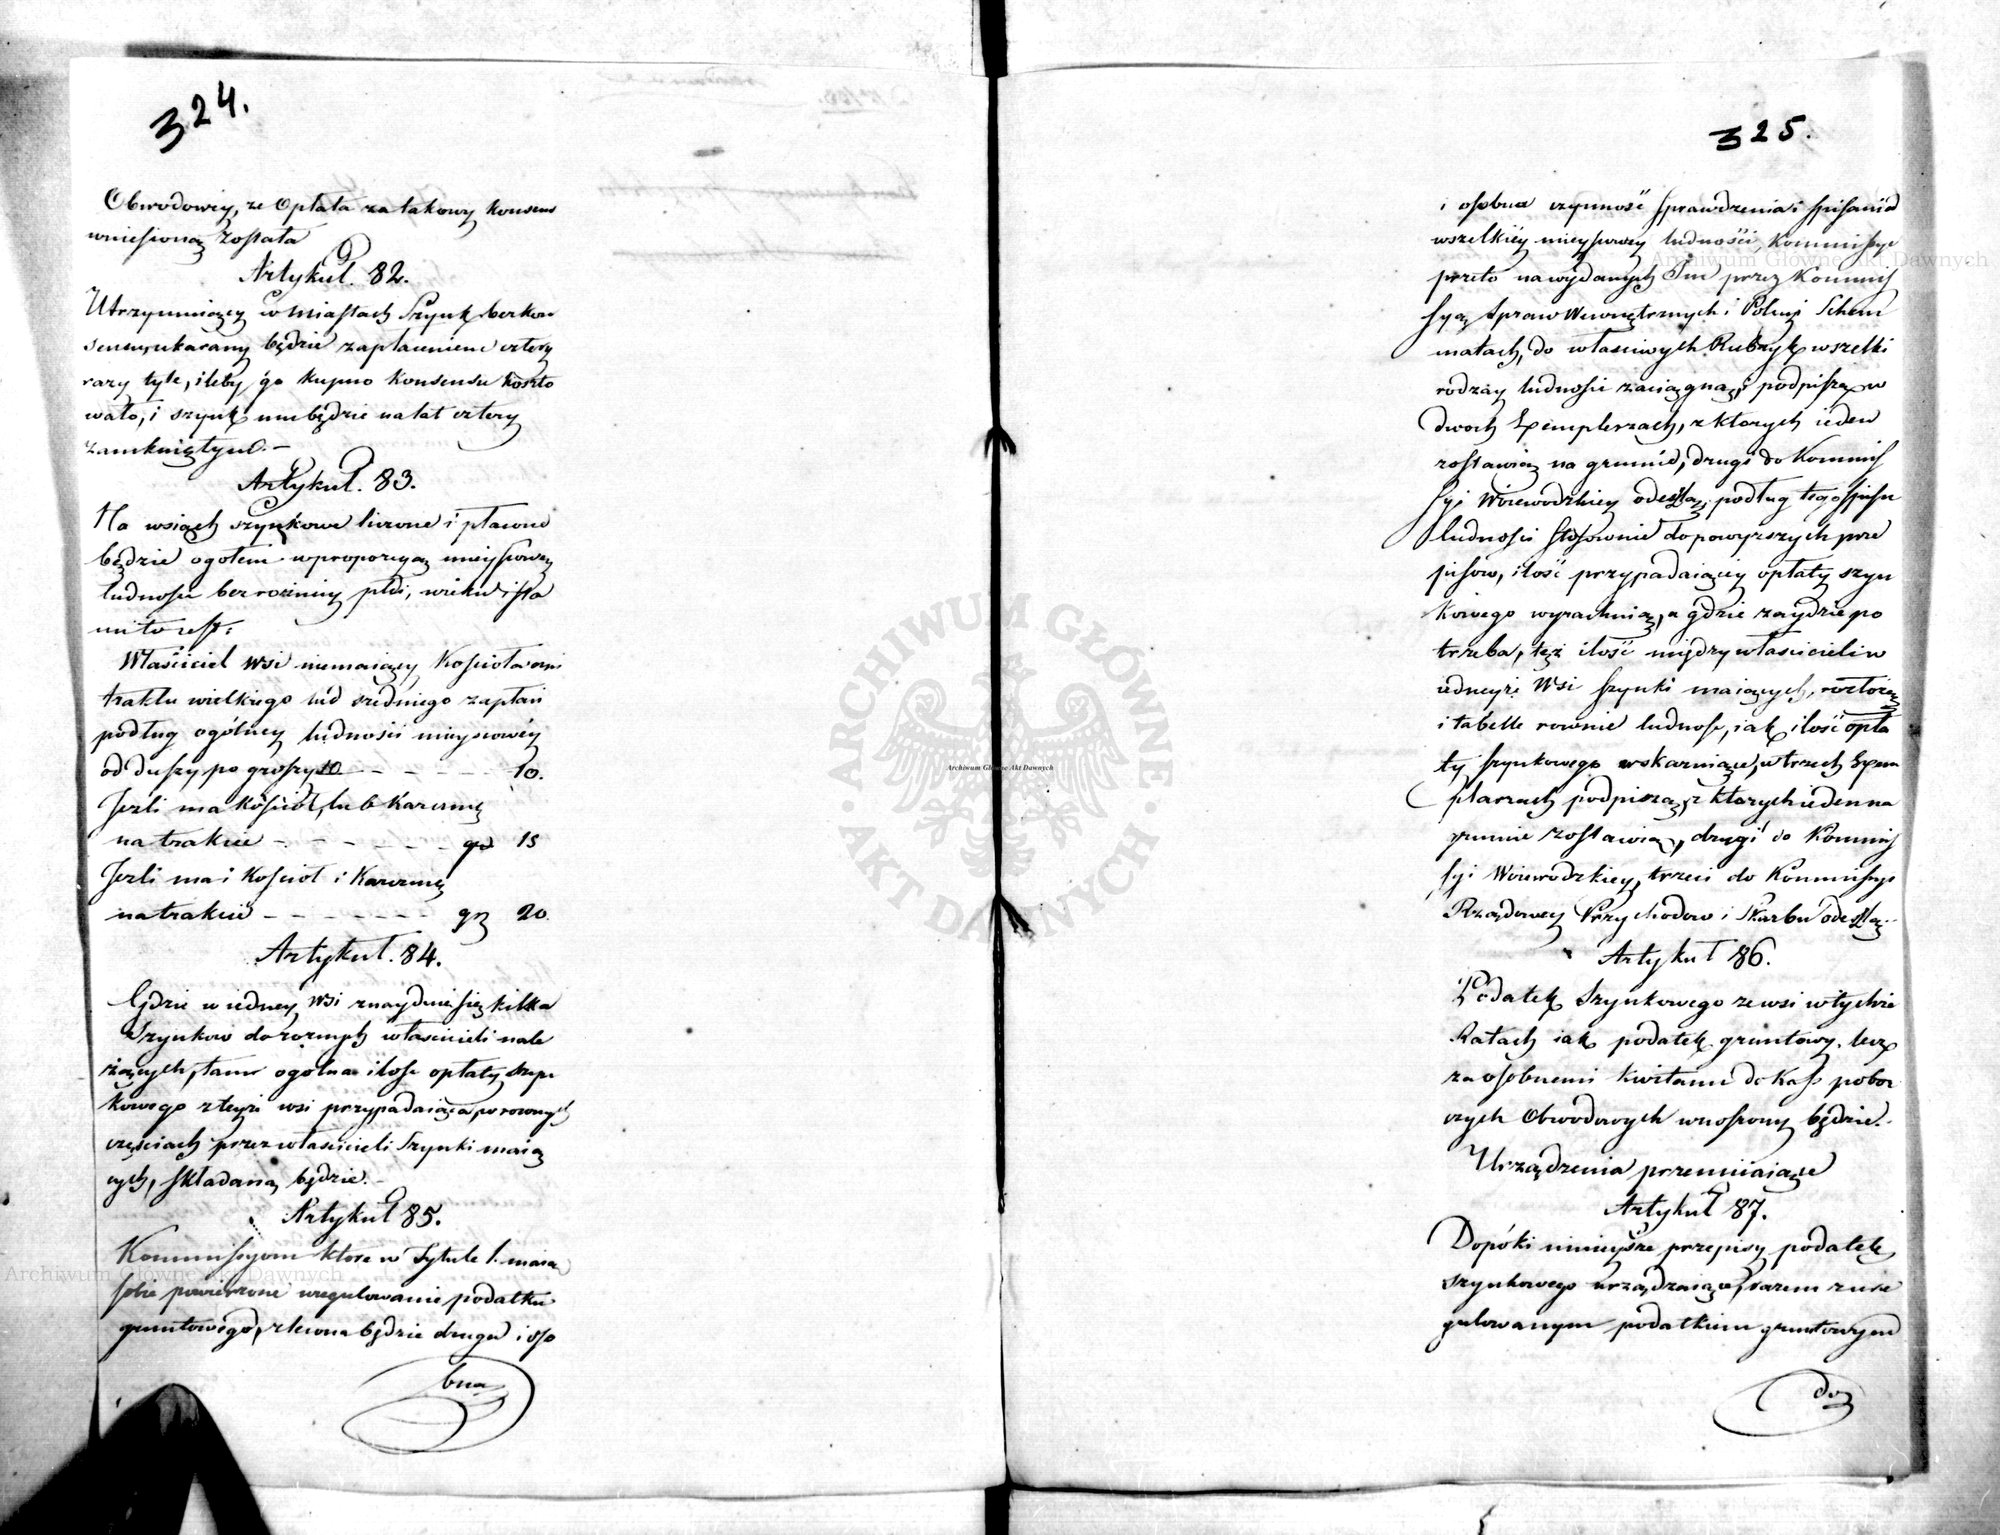 324.
Obwodowey, że Opłata za takowy konsens
wniesioną została
Artykuł. 82.
Utrzymuiący w miastach Szynk bez kon
sensu, ukarany będzie zapłaceniem cztery
razy tyle, ileby go kupno konsensu koszto
wało, i szynk mu będzie na lat cztery
zamkniętym. –
Artykuł. 83.
Na wsiach szynkowe liczone i płacone
będzie ogółem w proporcyą mieyscowey
ludności bez różnicy płci, wieku i sta
nu to iest:
Właściciel wsi niemaiący Kościoła ani
traktu wielkiego lub średniego zapłaci
podług ogólney ludności mieyscowéy
od duszy po groszy 10 – – – – – – 10.
Jeżli ma Kościół, lub Karczmę
na trakcie – – – – – – – gr 15
Jeżli ma i Kościoł i Karczmę
na trakcie – – – – – – – gr 20.
Artykuł. 84.
Gdzie w iedney wsi znayduie się kilka
Szynkow do rożnych właścicieli nale
żących, tam ogolna ilość opłaty szyn
kowego z teyże wsi przypadaiąca, po rownych
częściach przez właścicieli Szynki maią
cych, składaną będzie. –
Artykuł 85.
Kommissyom które w Tytule 1. maią
sobie powierzone uregulowanie podatku
gruntowego, zlecona będzie druga i oso
bna
325.
i osobna czynność sprawdzenia i spisania
wszelkiéy mieyscowey ludności, Kommissye
przeto na wydanych Im przez Kommis
syą Spraw Wewnętrznych i Policyi Schem
matach, do właściwych Rubryk wszelki
rodzay ludności zaciągną, i podpiszą w
dwoch Exemplerzach, z ktorych ieden
zostawią na gruncie, drugi do Kommis
syi Woiewodzkiey odeszlą, podług tego spisu
ludności stosownie do powyższych prze
pisow, ilość przypadaiącey opłaty szyn
kowego wyrachuią, a gdzie zaydzie po
trzeba, tęż ilość między właścicieli w
iedneyże Wsi szynki maiących, rozłożą
i tabelle rownie ludność, iak ilość opła
ty szynkowego wskazuiące, w trzech Exem
plarzach podpiszą, z ktorych ieden na
gruncie zostawią, drugi do Kommis
syi Woiewodzkiey, trzeci do Kommissyi
Rządowey Przychodow i Skarbu odeszlą. –
Artykuł 86.
Podatek Szynkowego ze wsi w tychże
Ratach iak podatek gruntowy, lecz
za osobnemi kwitami do Kass pobor
czych Obwodowych wnoszony będzie. –
Urządzenia przemiiaiące
Artykuł 87.
Dopóki ninieysze przepisy podatek
szynkowego urządzaiące, razem z ure
gulowanym podatkiem gruntowym
do
ARCHIWUM GŁÓWNE AKT DAWNYCH
Archiwum Główne Akt Dawnych
Archiwum Główne Akt Dawnych
Archiwum Główne Akt Dawnych